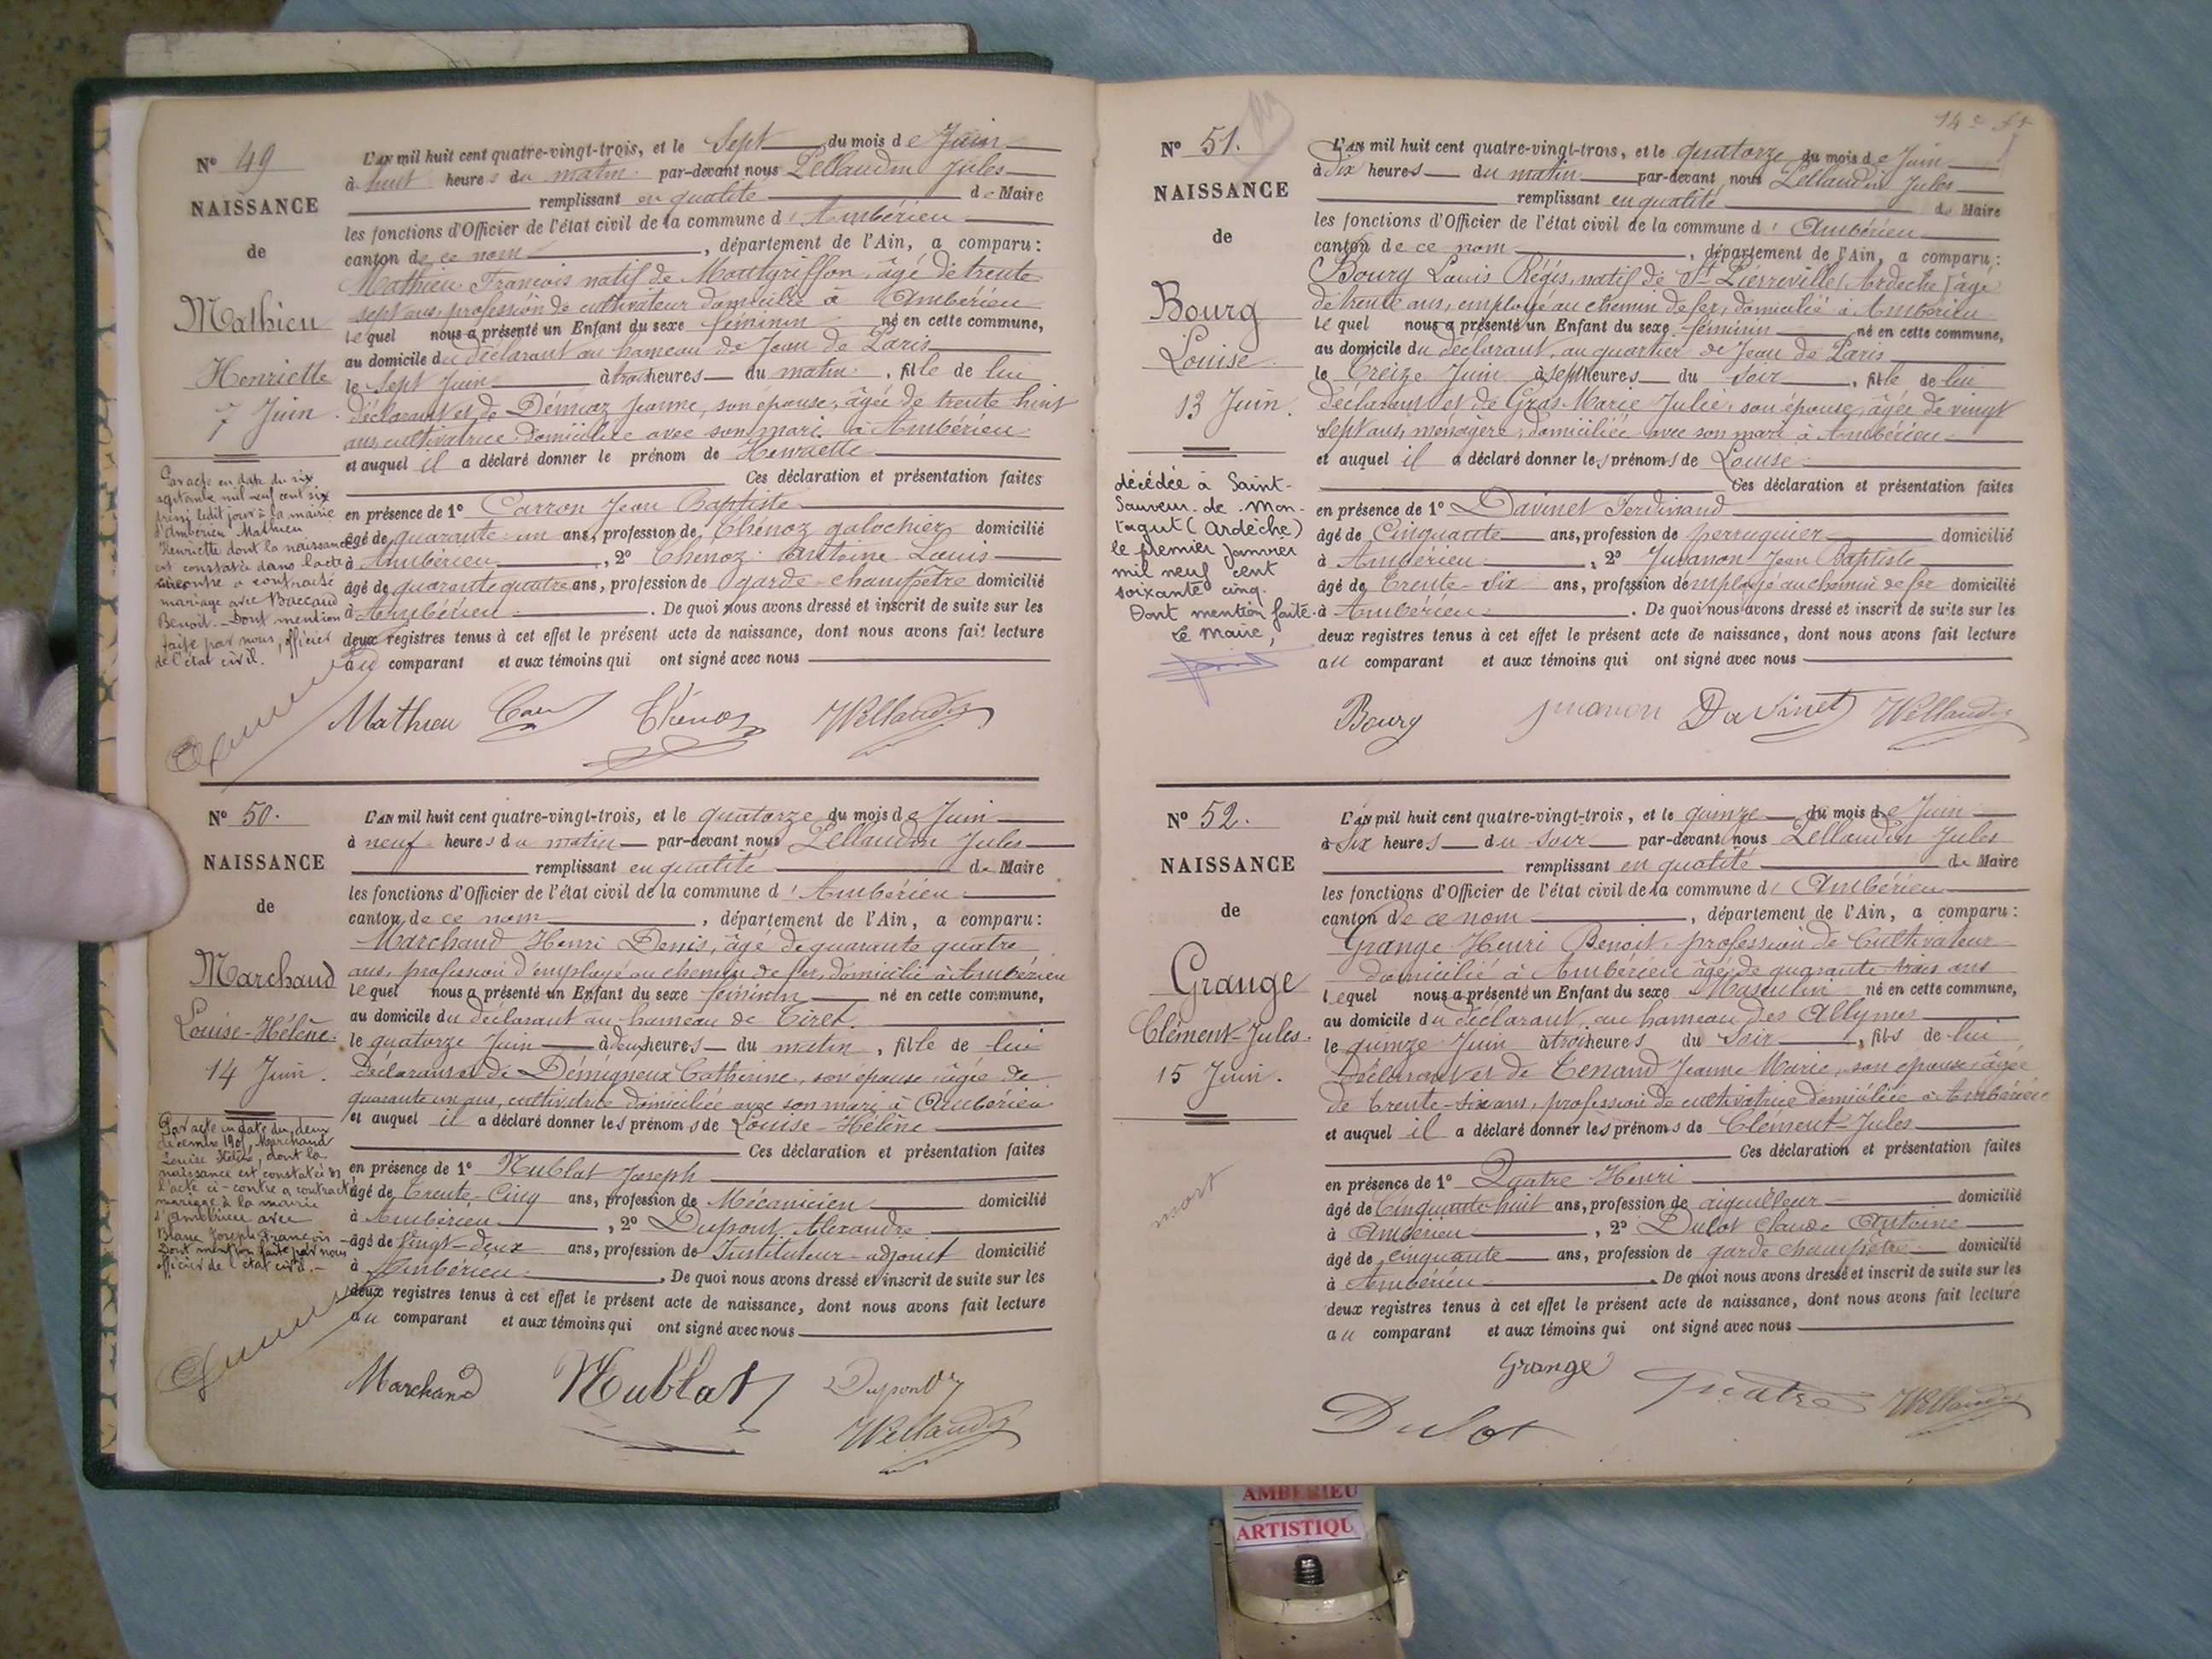 N° 49
NAISSANCE
de
Mathieu
Henriette
7 Juin.
Par acte en date du six
septembre mil neuf cent six
dressé ledit jour à la mairie
d'Ambérieu Mathieu
Henriette dont la naissance
est constatée dans l'acte
ci-contre a contracté
mariage avec Baccaud
Benoit. Dont mention
faite par nous, officier
de l'état civil.
L'an mil huit cent quatre-vingt-trois, et le Sept du mois de Juin
à huit heures du matin par-devant nous Pellaudin Jules
remplissant en qualité de Maire
les fonctions d'Officier de l'état civil de la commune d'Ambérieu
canton de ce nom, département de l'Ain, a comparu :
Mathieu François natif de Montgriffon, âgé de trente
sept ans, profession de cultivateur domicilié à Ambérieu
lequel nous a présenté un Enfant du sexe féminin né en cette commune,
au domicile du déclarant au hameau de Jean de Paris
le sept Juin à trois heures du matin, fille de lui
déclarant et de Démiaz Jeanne, son épouse, âgée de trente huit
ans, cultivatrice domiciliée avec son mari à Ambérieu
et auquel il a déclaré donner le prénom de Henriette
Ces déclaration et présentation faites
en présence de 1° Carron Jean Baptiste
âgé de quarante un ans, profession de galochier domicilié
à Ambérieu, 2° Thénoz Antoine Louis
âgé de quarante quatre ans, profession de garde-champêtre domicilié
à Ambérieu. De quoi nous avons dressé et inscrit de suite sur les
deux registres tenus à cet effet le présent acte de naissance, dont nous avons fait lecture
au comparant et aux témoins qui ont signé avec nous
Mathieu Thénoz JPellaudin
N° 50.
NAISSANCE
de
Marchand
Louise-Hélène.
14 Juin.
Par acte en date du deux
décembre 190 Marchand
Louise Hélène, dont la
naissance est constatée ds
l'acte ci-contre a contracté
mariage à la mairie
d'Ambérieu avec
Blanc Joseph François
Dont mention faite par nous
officier de l'état civil.
L'an mil huit cent quatre-vingt-trois, et le quatorze du mois de Juin
à neuf heures du matin par-devant nous Pellaudin Jules
remplissant en qualité de Maire
les fonctions d'Officier de l'état civil de la commune d'Ambérieu
canton de ce nom, département de l'Ain, a comparu :
Marchand Henri Denis, âgé de quarante quatre
ans, profession d'employé au chemin de fer, domicilié à Ambérieu
lequel nous a présenté un Enfant du sexe féminin né en cette commune,
au domicile du déclarant au hameau de Tiret.
le quatorze Juin à deux heures du matin, fille de lui
déclarant et de Démigneux Catherine, son épouse, âgée de
quarante un ans, cultivatrice domiciliée avec son mari à Ambérieu
et auquel il a déclaré donner les prénoms de Louise-Hélène
Ces déclaration et présentation faites
en présence de 1° Nublat Joseph
âgé de Trente-Cinq ans, profession de Mécanicien domicilié
à Ambérieu, 2° Dupont Alexandre
âgé de Vingt-deux ans, profession de Instituteur-adjoint domicilié
à Ambérieu. De quoi nous avons dressé et inscrit de suite sur les
deux registres tenus à cet effet le présent acte de naissance, dont nous avons fait lecture
au comparant et aux témoins qui ont signé avec nous
Marchand Nublat Dupont
JPellaudin
14e
N° 51.
NAISSANCE
de
Bourg
Louise
13 Juin.
décédée à Saint-
Sauveur de Mon-
tagut (Ardèche)
le premier Janvier
mil neuf cent
soixante cinq.
Dont mention faite
Le maire,
L'an mil huit cent quatre-vingt-trois, et le quatorze du mois de Juin
à dix heures du matin par-devant nous Pellaudin Jules
remplissant en qualité de Maire
les fonctions d'Officier de l'état civil de la commune d'Ambérieu
canton de ce nom, département de l'Ain, a comparu :
Bourg Louis Régis, natif de St Pierreville (Ardèche) âgé
de trente ans, employé au chemin de fer, domicilié à Ambérieu
lequel nous a présenté un Enfant du sexe féminin né en cette commune,
au domicile du déclarant, au quartier de Jean de Paris
le Treize Juin à sept heures du soir, fille de lui
déclarant et de Gras Marie Julie, son épouse, âgée de vingt
sept ans, ménagère, domiciliée avec son mari à Ambérieu
et auquel il a déclaré donner les prénoms de Louise
Ces déclaration et présentation faites
en présence de 1° Davinet Ferdinand
âgé de Cinquante ans, profession de perruquier domicilié
à Ambérieu, 2° Juvanon Jean Baptiste
âgé de Trente-Six ans, profession d'employé au chemin de fer domicilié
à Ambérieu. De quoi nous avons dressé et inscrit de suite sur les
deux registres tenus à cet effet le présent acte de naissance, dont nous avons fait lecture
au comparant et aux témoins qui ont signé avec nous
Bourg Juvanon Davinet JPellaudin
N° 52.
NAISSANCE
de
Grange
Clément-Jules.
15 Juin.
mort
L'an mil huit cent quatre-vingt-trois, et le quinze du mois de Juin
à Six heures du soir par-devant nous Pellaudin Jules
remplissant en qualité de Maire
les fonctions d'Officier de l'état civil de la commune d'Ambérieu
canton de ce nom, département de l'Ain, a comparu :
Grange Henri Benoit, profession de Cultivateur
domicilié à Ambérieu âgé de quarante trois ans
lequel nous a présenté un Enfant du sexe Masculin né en cette commune,
au domicile du déclarant, au hameau des Allymes
le quinze Juin à trois heures du Soir, fils de lui
déclarant et de Tenand Jeanne Marie, son épouse âgée
de Trente-six ans, profession de cultivatrice domiciliée à Ambérieu
et auquel il a déclaré donner les prénoms de Clément-Jules
Ces déclaration et présentation faites
en présence de 1° Quatre Henri
âgé de Cinquante huit ans, profession de aiguilleur domicilié
à Ambérieu, 2° Dulot Claude Antoine
âgé de cinquante ans, profession de garde champêtre domicilié
à Ambérieu. De quoi nous avons dressé et inscrit de suite sur les
deux registres tenus à cet effet le présent acte de naissance, dont nous avons fait lecture
au comparant et aux témoins qui ont signé avec nous
Grange Quatre JPellaudin
Dulot
AMBERIEU
ARTISTIQU